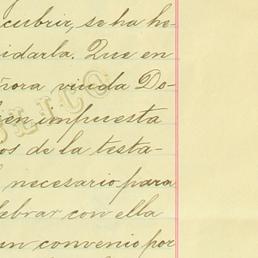 cubrir, se ha he-
idarla. Que en
ñora viuda Do-
bien impuesta
os de la testa-
necesario para
lebrar con ella
un convenio por